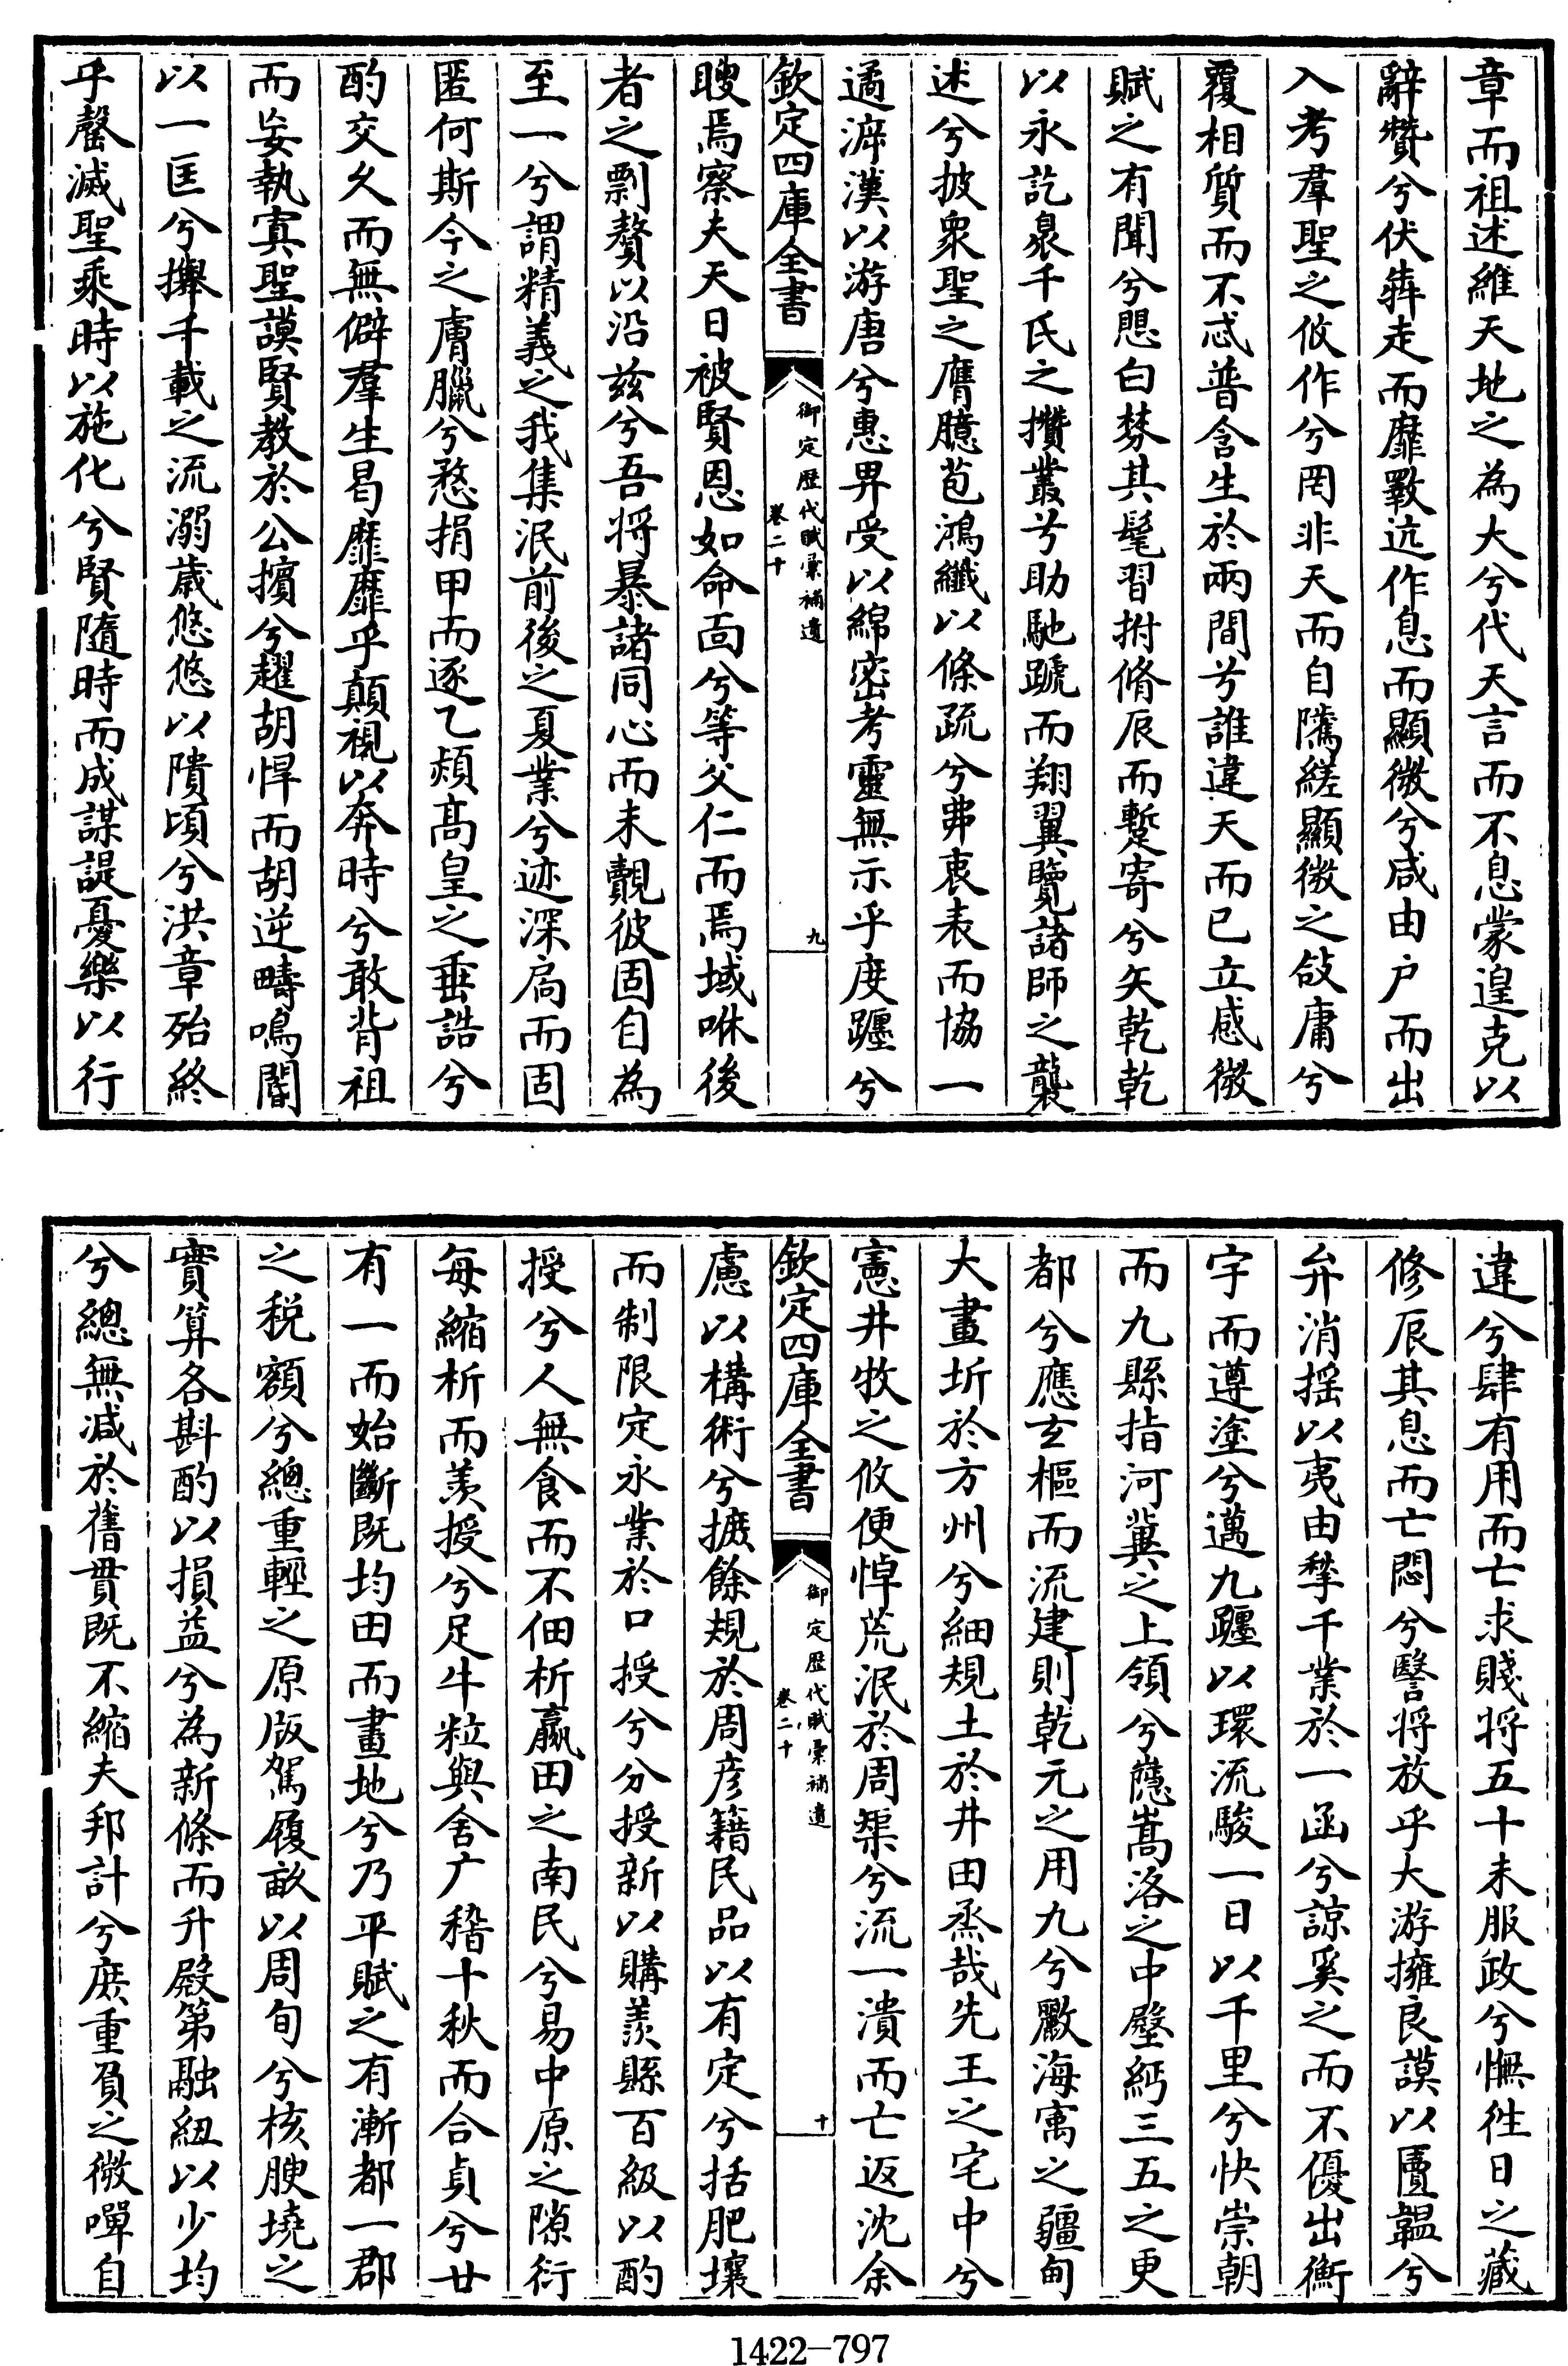 章而祖述維天地之為大兮代天言而不息蒙遑克以
辭贊兮伏犇走而靡斁迒作息而顯微兮咸由户而出
入考羣聖之攸作兮罔非天而自隲縒顯微之㪉庸兮
覆相質而不忒普含生於兩間兮誰違天而已立感微
賦之有聞兮愳白棼其髦習拊脩辰而蹔寄兮矢乾乾
以永訖裊千氏之攢叢兮助馳蹏而翔翼覽諸師之襲
述兮披衆聖之膺臆苞鴻纖以條疏兮弗衷表而協一
遹滜漢以游唐兮惠畀受以綿密考靈無示乎度躔兮
欽定四庫全書
御定歴代賦彙補遺
卷二十
九
䏂焉察夫天日被賢恩如命靣兮等父仁而焉域咻後
者之剽贅以沿兹兮吾將暴諸同心而未覿彼固自為
至一兮謂精義之我集泯前後之夏業兮迹深扃而固
匿何斯今之膚臘兮愗捐甲而逐乙頫高皇之垂誥兮
酌交久而無僻羣生曷靡靡乎顛視以奔時兮敢背祖
而妄執寘聖謨賢教於公擯兮趯胡悍而胡逆疇鳴闇
以一匡兮擧千載之流溺歲悠悠以隤頃兮洪章殆終
乎罄滅聖乘時以施化兮賢隨時而成謀諟憂樂以行
違兮肆有用而亡求賤將五十未服政兮憮徃日之藏
修辰其息而亡悶兮謦將放乎大游擁良謨以匵韞兮
弁消揺以夷由孳千業於一函兮諒奚之而不優出衡
宇而遵塗兮邁九躔以環流駿一日以千里兮快崇朝
而九縣指河冀之上領兮蘟嵩洛之中壂絇三五之更
都兮應玄樞而流建則乾元之用九兮黻海㝢之疆甸
大畫圻於方州兮細規土於井田烝哉先王之宅中兮
憲井牧之攸便悼荒泯於周槼兮流一潰而亡返沈余
欽定四庫全書
御定歴代賦彙補遺
卷二十
十
慮以構術兮摭餘規於周彦籍民品以有定兮括肥壤
而制限定永業於口授兮分授新以購羨縣百級以酌
授兮人無食而不佃析羸田之南民兮易中原之隙衍
每縮析而羨授兮足牛粒與舍广稽十秋而合貞兮廿
有一而始斷既均田而畫地兮乃平賦之有漸都一郡
之税額兮總重輕之原版駕履畝以周旬兮核腴墝之
實算各斟酌以損益兮為新條而升殿第融紐以少均
兮總無減於舊貫既不縮夫邦計兮庶重負之微嘽自
1422-797